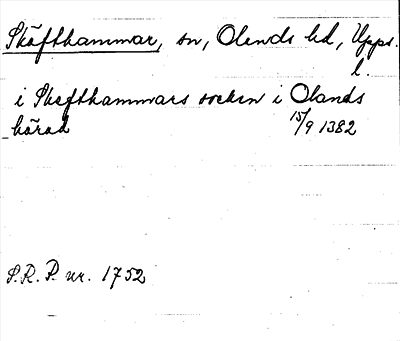 Skäfthammar, sn, Olands hd, Upps.
l.
i Skefthammars socken i Olands
härad 15/9 1382
S.R.P. nr. 1752